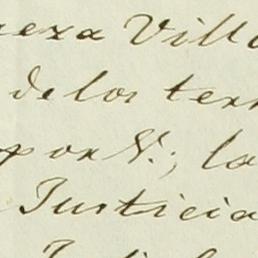 Villa
de los terr
por V.; la
Justicia